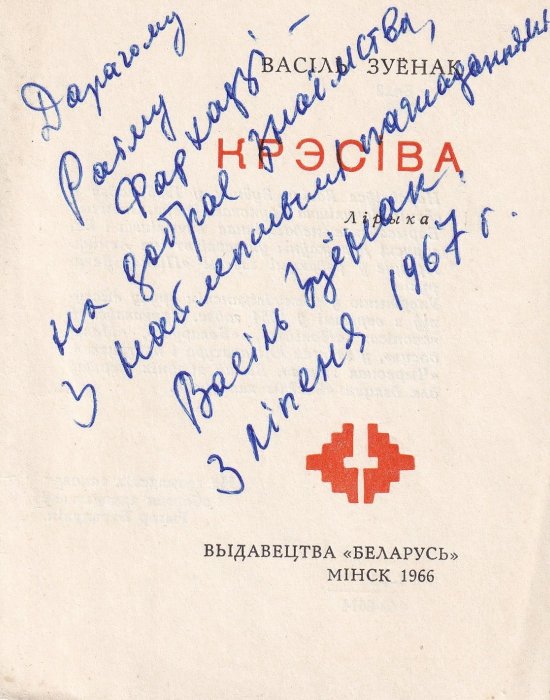 Дарагому
Раіму
Фархадзі —
на добрае знаёмства,
з найлепшымі пажаданнямі
Васіль Зуёнак.
3 ліпеня 1967 г.
ВАСІЛЬ ЗУЁНАК
КРЭСІВА
Лірыка
ВЫДАВЕЦТВА «БЕЛАРУСЬ»
МІНСК 1966